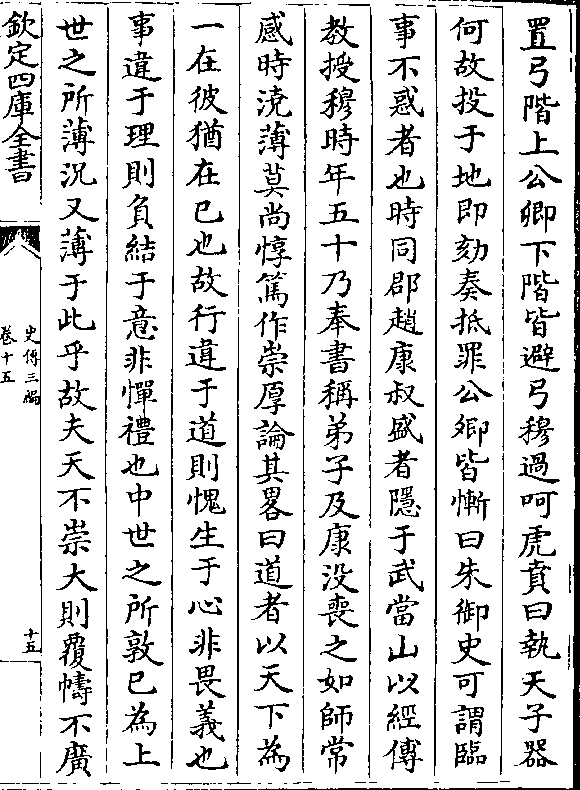 置弓階上公卿下階皆避弓穆過呵虎賁曰執天子器
何故投于地即劾奏抵罪公卿皆慚曰朱御史可謂臨
事不惑者也時同郡趙康叔盛者隱于武當山以經傅
教授穆時年五十乃奉書稱弟子及康没喪之如師常
感時澆薄莫尚惇篤作崇厚論其畧曰道者以天下為
一在彼猶在巳也故行違于道則愧生于心非畏義也
事違于理則負結于意非憚禮也中世之所敦巳為上
世之所薄況又薄于此乎故夫天不崇大則覆幬不廣
欽定四庫全書
史傳三編
卷十五
十五